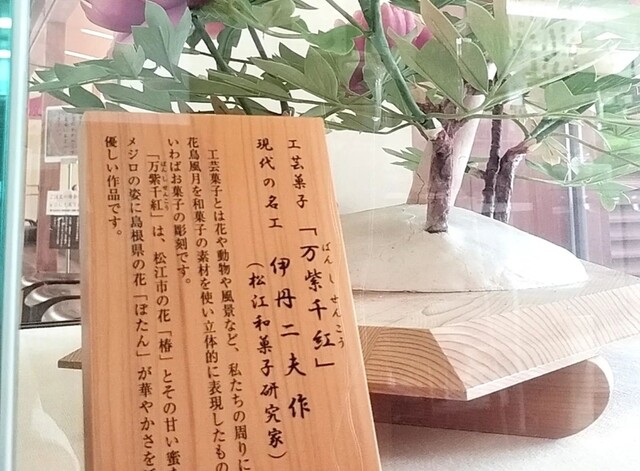 工芸菓子 「万紫千紅」
ばんしせんこう
現代の名工 伊丹二夫 作
(松江和菓子研究家)
工芸菓子とは花や動物や風景など、私たちの周りに
花鳥風月を和菓子の素材を使い立体的に表現したもの
いわばお菓子の彫刻です。
ばんしせんこう
「万紫千紅」は、松江市の花「椿」とその甘い蜜
メジロの姿に島根県の花「ぼたん」が華やかさを
優しい作品です。